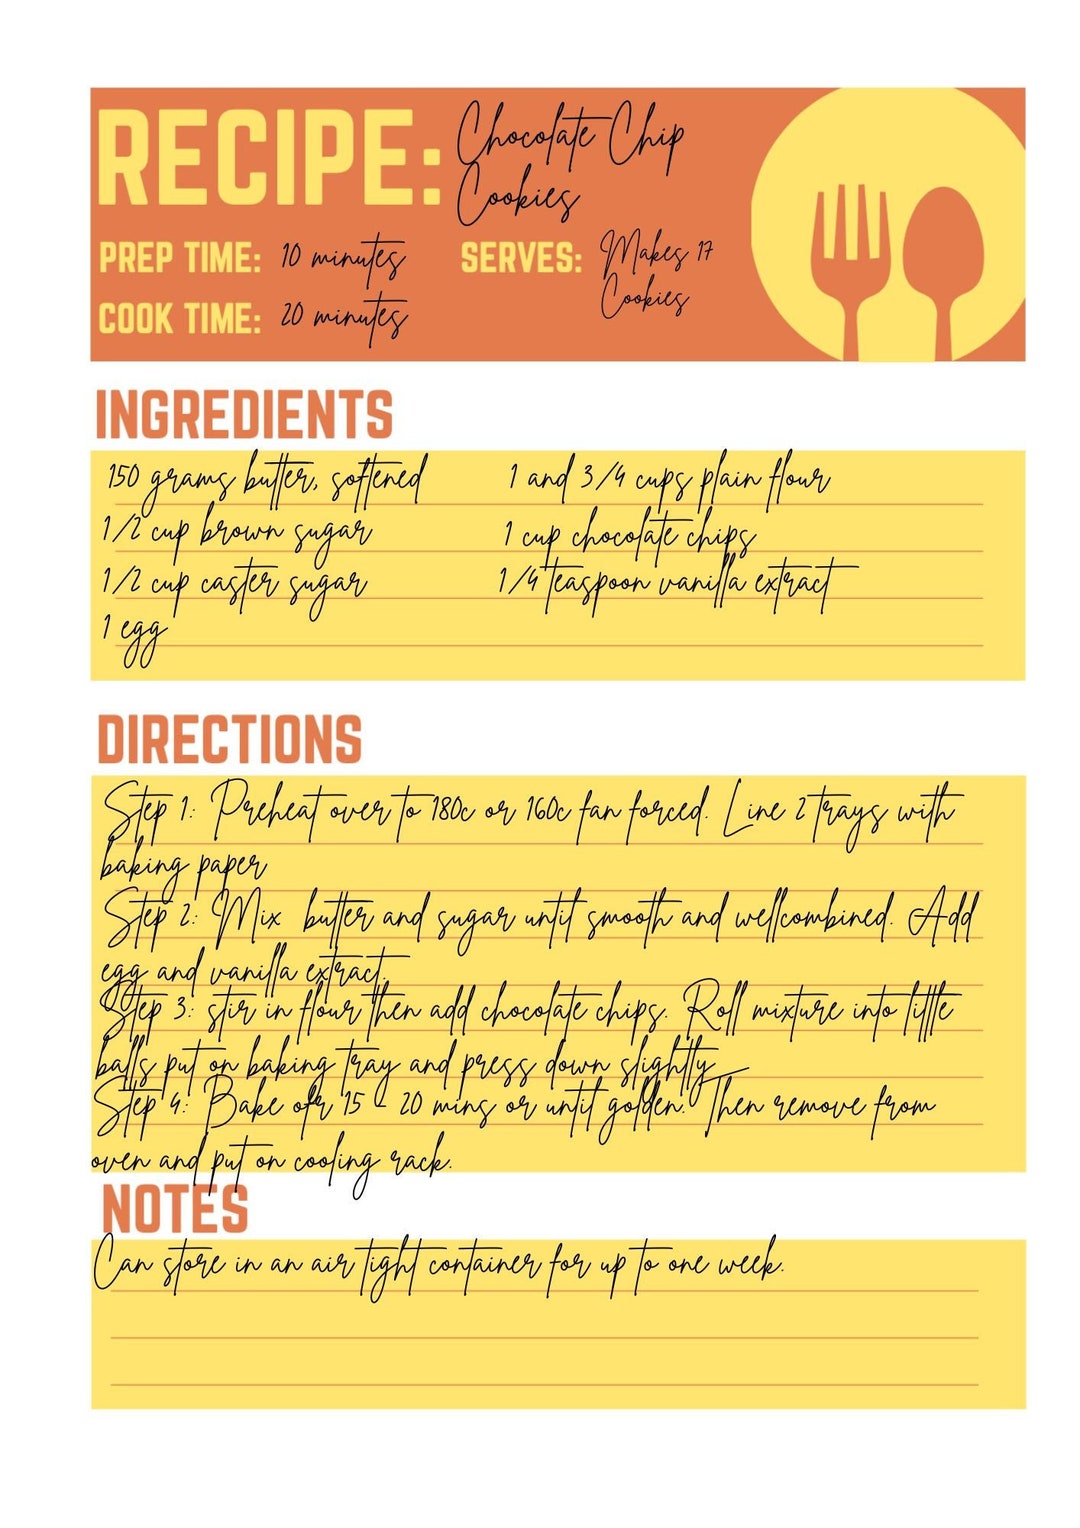 RECIPE: Chocolate Chip
Cookies
PREP TIME: 10 minutes
SERVES: Makes 17
Cookies
COOK TIME: 20 minutes
INGREDIENTS
150 grams butter, softened
1/2 cup brown sugar
1/2 cup caster sugar
1 egg
1 and 3/4 cups plain flour
1 cup chocolate chips
1/4 teaspoon vanilla extract
DIRECTIONS
Step 1: Preheat over to 180c or 160c fan forced. Line 2 trays with
baking paper
Step 2: Mix butter and sugar until smooth and wellcombined. Add
egg and vanilla extract.
Step 3: stir in flour then add chocolate chips. Roll mixture into little
balls put on baking tray and press down slightly
Step 4: Bake ofr 15 - 20 mins or until golden. Then remove from
oven and put on cooling rack.
NOTES
Can store in an air tight container for up to one week.